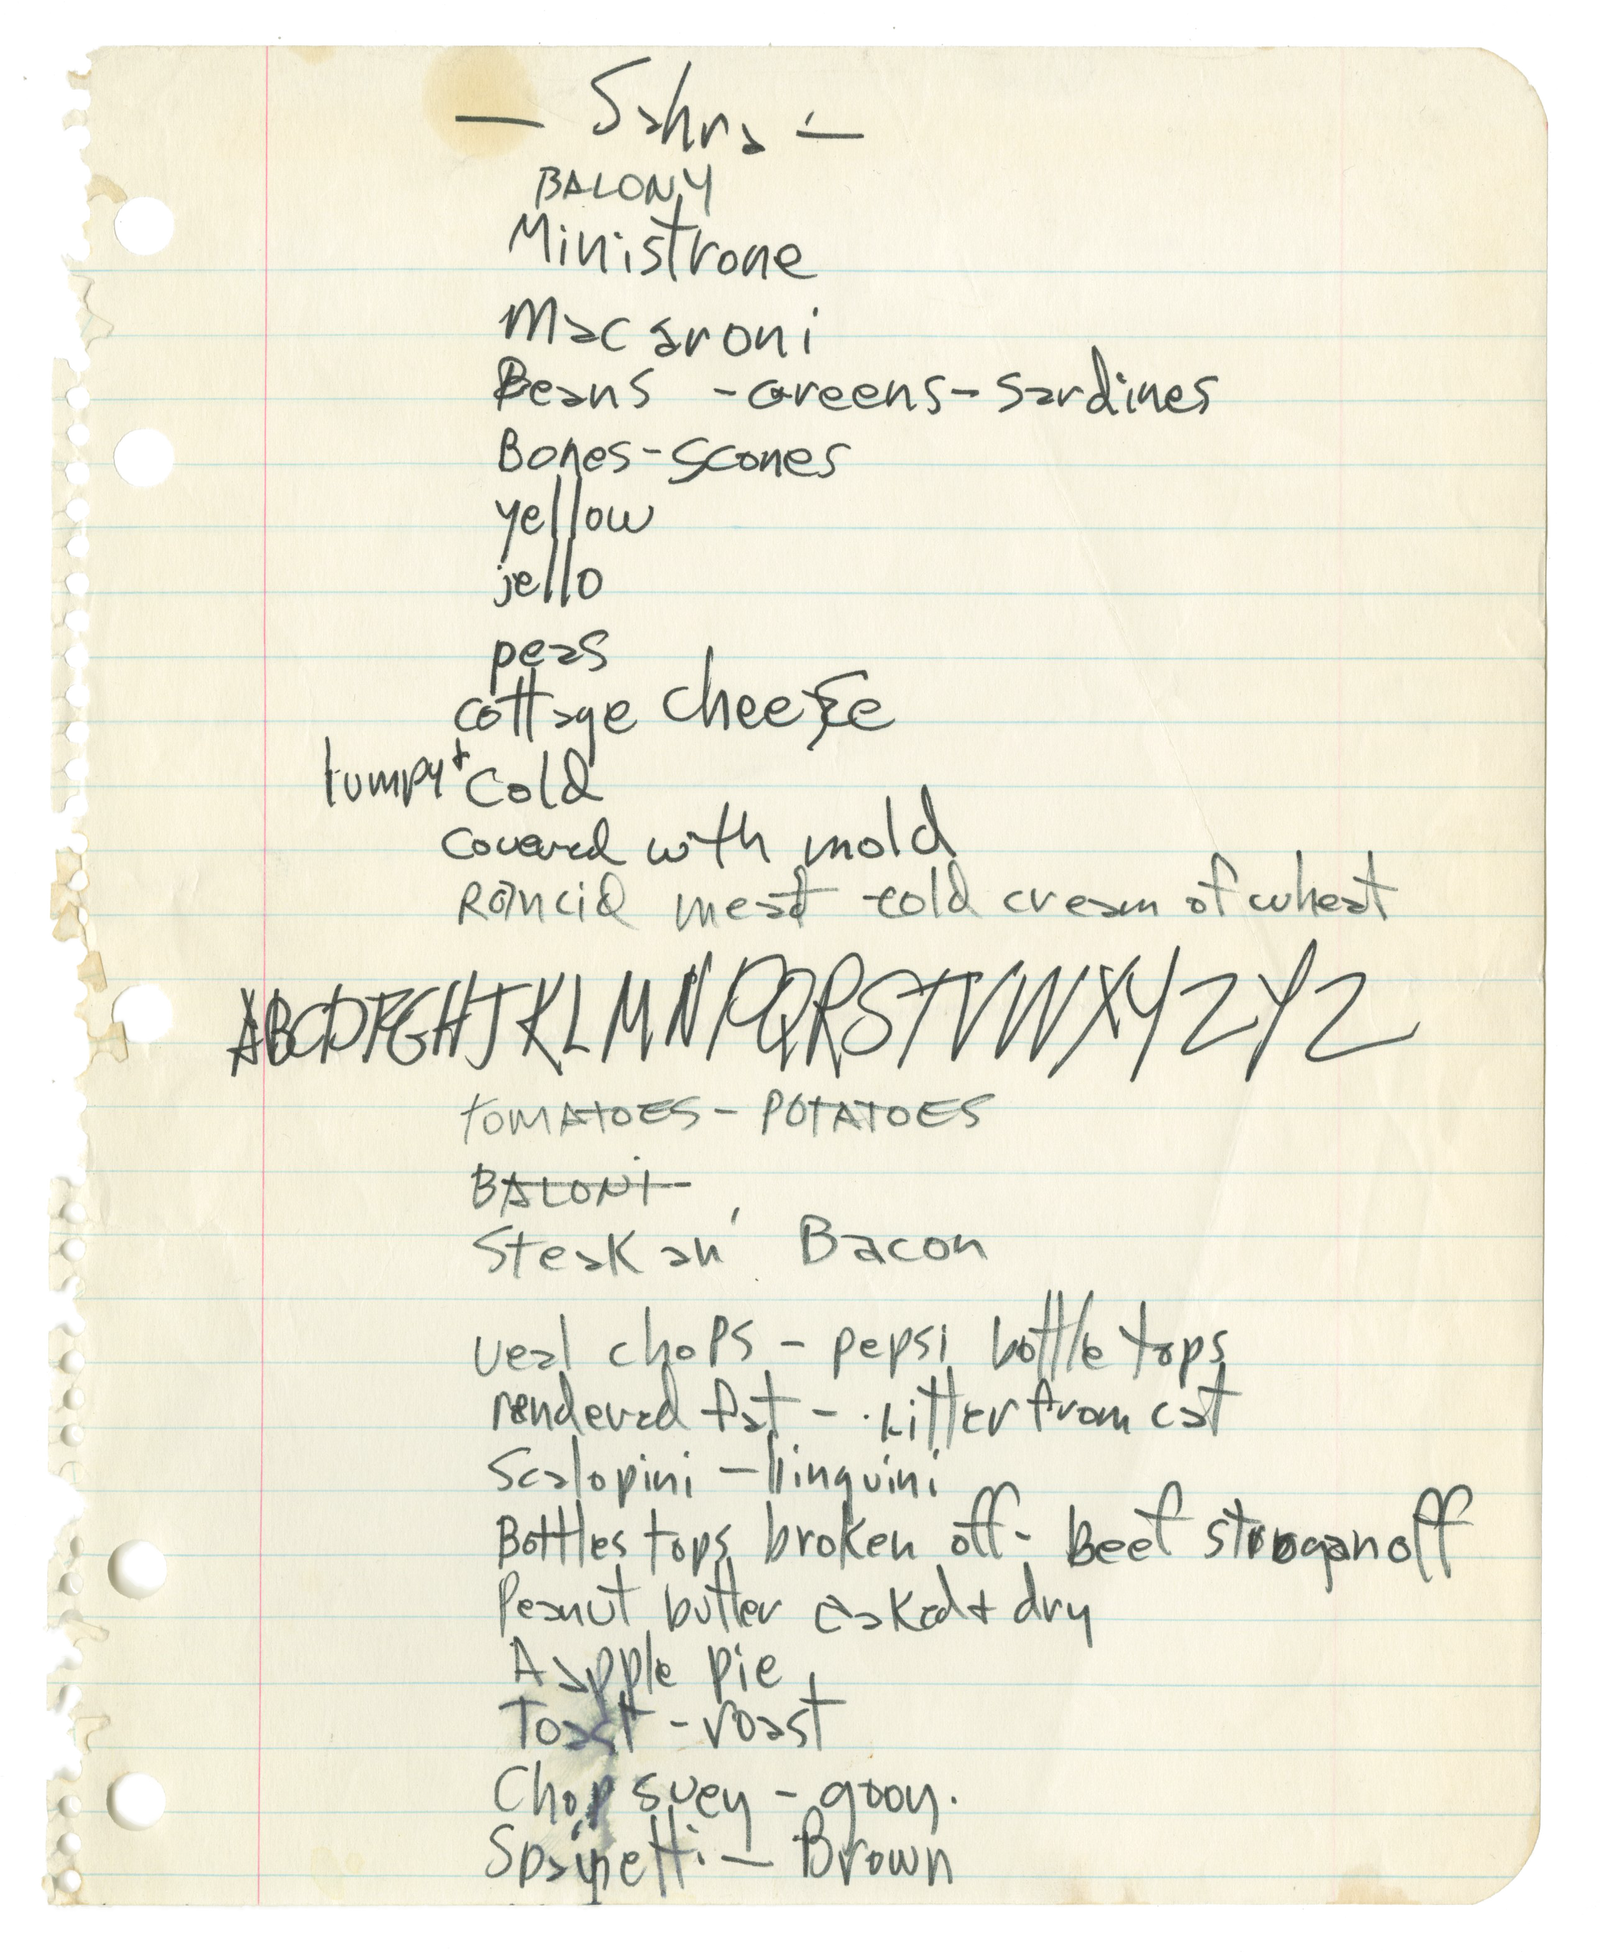 — Sahra —
BALONY
Ministrone
Macaroni
Beans - Greens - Sardines
Bones - Scones
yellow
jello
peas
cottage cheese
lumpy + cold
covered with mold
Rancid meat cold cream of wheat
ABCDFGHJKLMNPQRSTVWXYZYZ
TOMATOES - POTATOES
BALONY
Steak an' Bacon
veal chops - pepsi bottle tops
rendered fat - litter from cat
Scalopini - linguini
Bottles tops broken off - Beef stroganoff
Peanut butter caked + dry
Aapple pie
Toast - roast
Chop suey - gooy.
— Brown